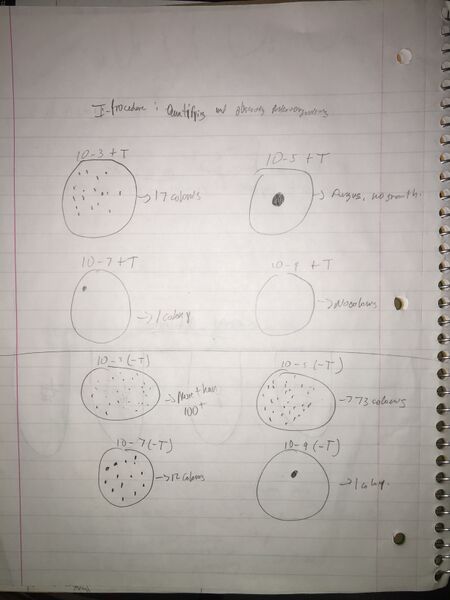 I-Procedure: Quantifying and observing microorganisms
10-3 + T
10-5 + T
→ 17 colonies
→ Fungus, no growth.
10-7 + T
10-9 + T
→ 1 colony
→ No colonies
10-3 (-T)
10-5 (-T)
→ More than
100+
→ 73 colonies
10-7 (-T)
10-9 (-T)
→ 12 colonies
→ 1 colony.